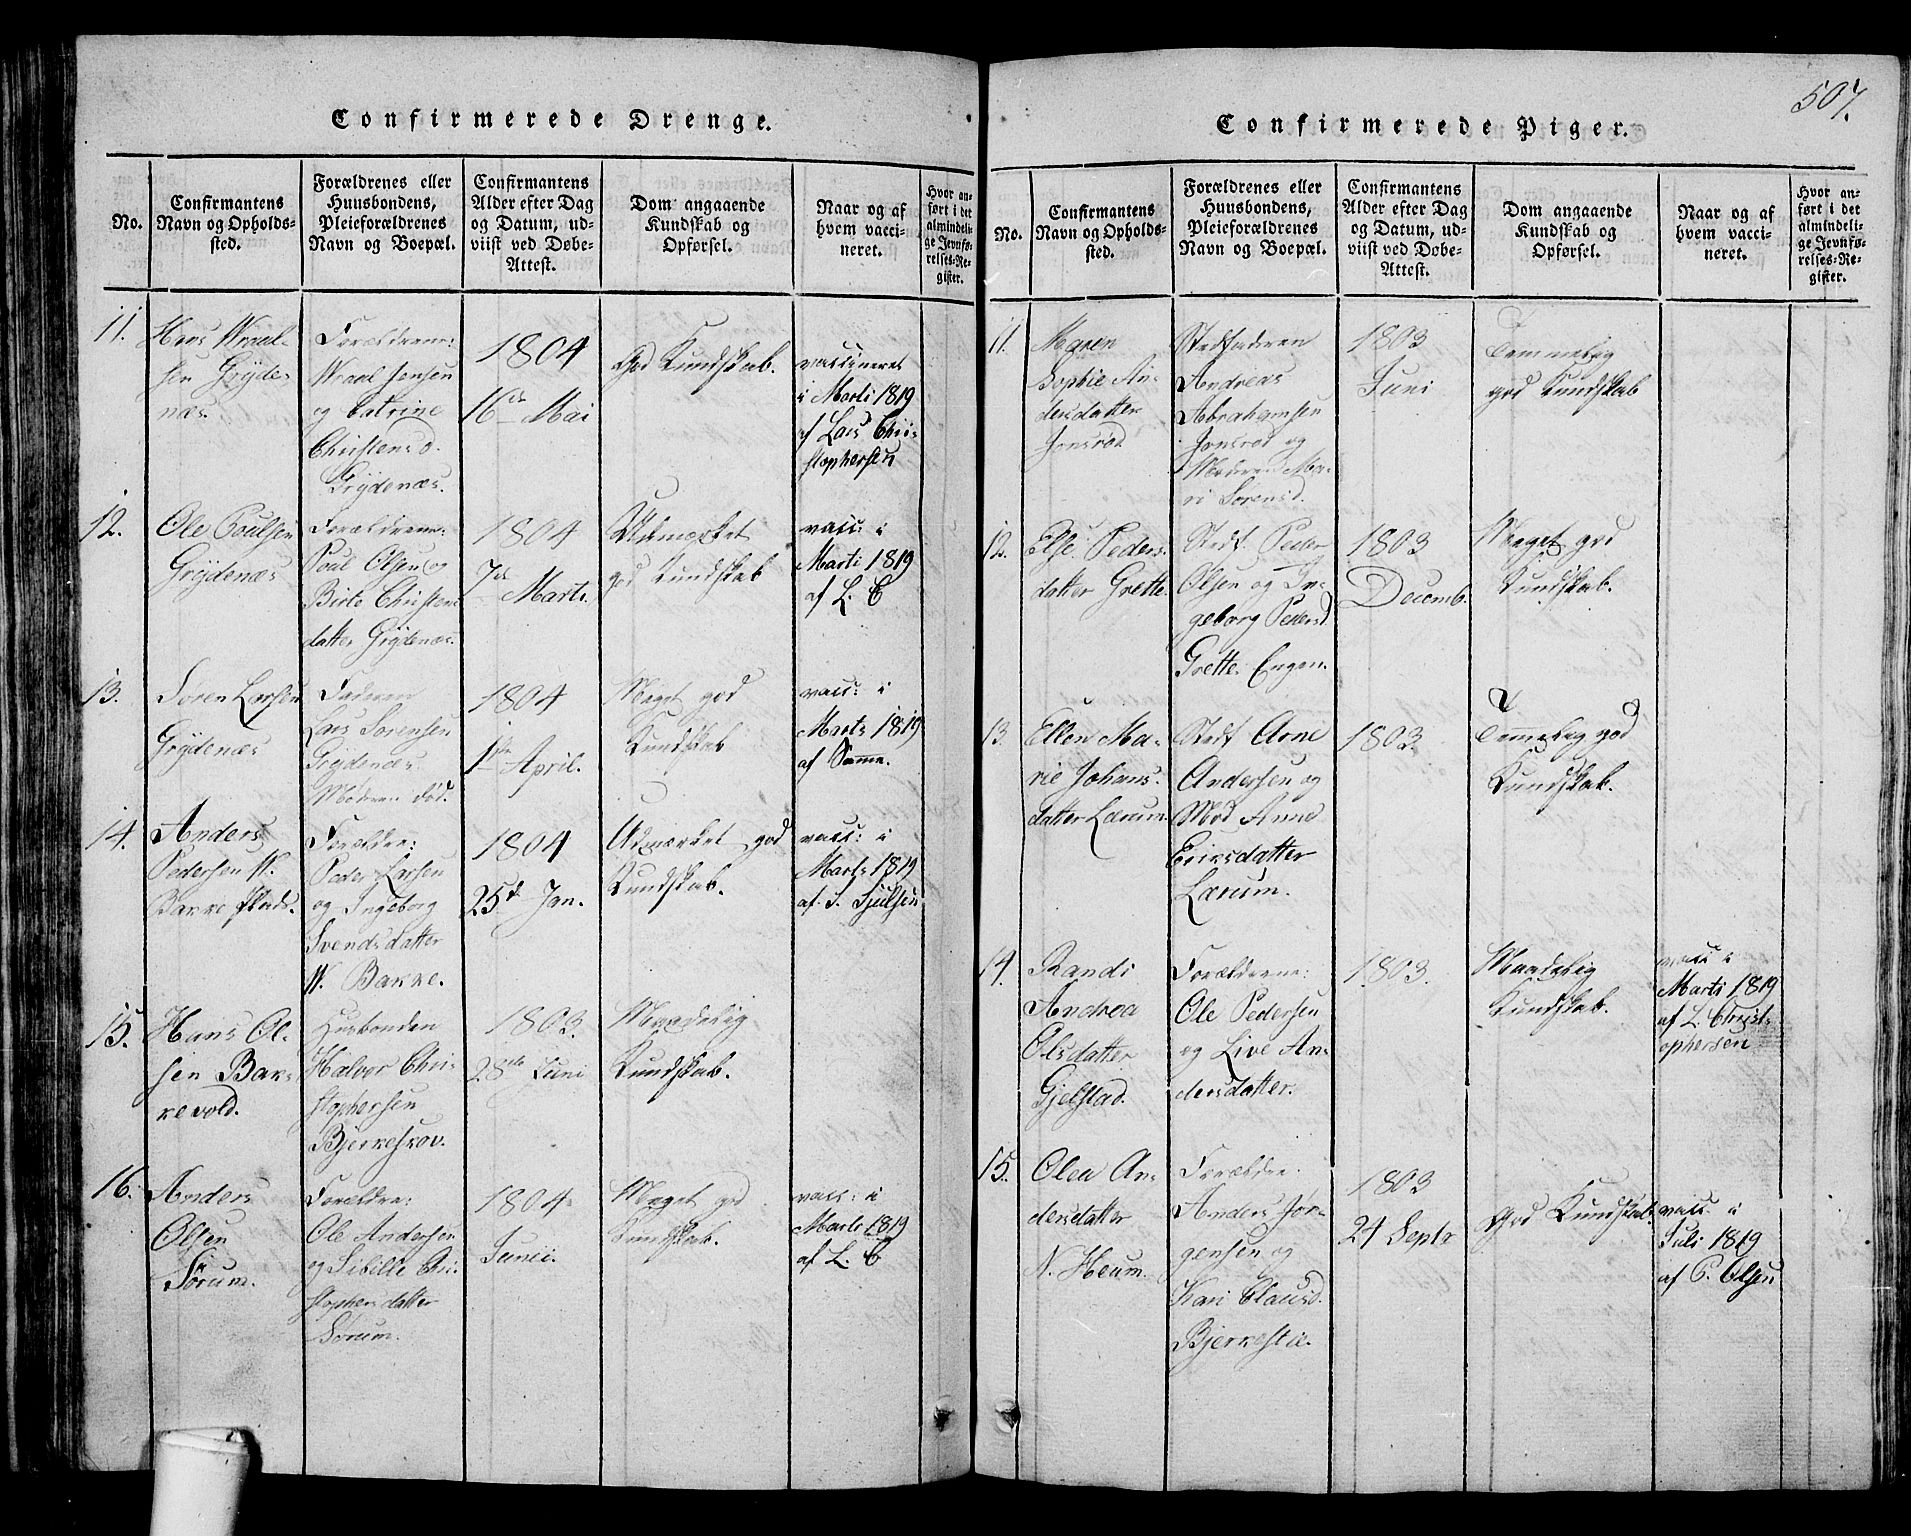 507.
Confirmerede Drenge.
No.
Confirmantens
Navn og Opholds-
sted.
Forældrenes eller
Huusbondens,
Pleieforældrenes
Navn og Boepæl.
Confirmantens
Alder efter Dag
og Datum, ud-
viist ved Døbe-
Attest.
Dom angaaende
Kundskab og
Opførsel.
Naar og af
hvem vacci-
neret.
Hvor an-
ført i det
almindeli-
ge Jevnfø-
relses-Re-
gister.
11.
Hans Wraal-
sen Grÿde-
næs
Forældrene:
Wraal Jensen
og Catrine
Christensd.
Grÿdenæs.
1804
16de Mai
God Kundskab.
vaccineret
i Marti 1819
af Lars Chri-
stophersen
12.
Ole Poulsen
Grÿdenæs
Forældrene:
Poul Olsen og
Birte Christens
datter Grÿdenæs.
1804
7de Marti.
Udmærket
god Kundskab
vacc: i
Marti 1819
af L. C
13.
Søren Larsen
Grÿdenæs
Faderen
Lars Sørensen
Grÿdenæs.
Moderen død.
1804
1ste April.
Meget god
Kundskab
vacc: i
Marts 1819
af Samme.
14.
Anders
Pedersen W.
Bakke
Forældre:
Peder Larsen
og Ingeborg
Svendsdatter
W. Bakke.
1804
25de Jan.
Udmærket god
Kundskab.
vacc: i
Marts 1819
af S. Sjulsen
15.
Hans Ol-
sen Bak-
kevold.
Husbonden
Halvor Chri-
stophersen
Bjerkeskov.
1803.
28de Juni
Maadelig
Kundskab.
16.
Anders
Olsen
Sørum.
Forældre:
Ole Andersen
og Sibille Chri-
stophersdatter
Sørum.
1804
Junii.
Meget god
Kundskab.
vacc: i
Marti 1819
af L. C
Confirmerede Piger.
No.
Confirmantens
Navn og Opholds-
sted.
Forældrenes eller
Huusbondens,
Pleieforældrenes
Navn og Boepæl.
Confirmantens
Alder efter Dag
og Datum, ud-
viist ved Døbe-
Attest.
Dom angaaende
Kundskab og
Opførsel.
Naar og af
hvem vacci-
neret.
Hvor an-
ført i det
almindeli-
ge Jevnfø-
relses-Re-
gister.
11.
Maren
Sophie An-
dersdatter
Jonsrød
Stedfaderen
Andreas
Abrahamsen
Jonsrød og
Moderen Ma-
ri Sørensd.
1803
Juni
Temmelig
god Kundskab
12.
Else Peders
datter Grette.
Stedf. Peder
Olsen og In-
geborg Pedersd
Grette Engen.
1803
Decemb.
Meget god
Kundskab.
13.
Ellen Ma-
rie Johans
datter Lærum.
Stedf Arne
Andersen og
Mod Anne
Eriksdatter
Lærum.
1803.
Temmelig god
Kundskab.
14.
Randi
Andrea
Olsdatter
Gjelstad.
Forældrene:
Ole Pedersen
og Live An-
dersdatter.
1803.
Maadelig
Kundskab.
vacc i
Marti 1819
af L. Christ-
ophersen
15.
Olea An-
dersdatter
N. Heum.
Forældre:
Anders Jør-
gensen og
Kari Clausd.
Bjerkestæ.
1803
24 Septr
God Kundskab.
vacc: i
Juli 1819
af P. Olsen